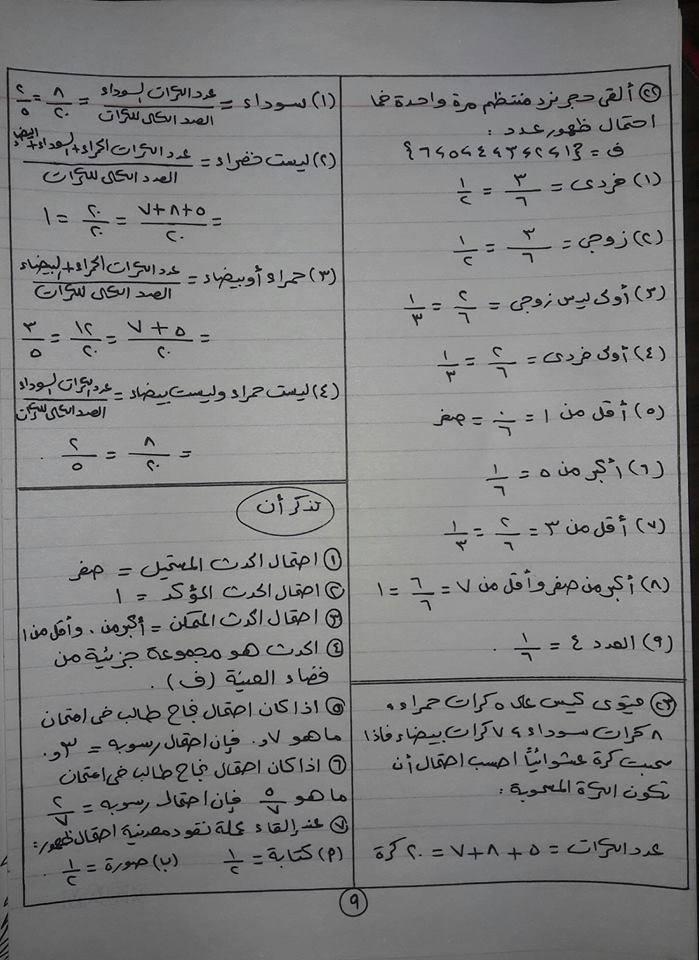 (٢٢) ألقى حجر نرد منتظم مرة واحدة فما
احتمال ظهور عدد :
ف = {١ ، ٢ ، ٣ ، ٤ ، ٥ ، ٦}
(١) فردى = ٣/٦ = ١/٢
(٢) زوجى = ٣/٦ = ١/٢
(٣) أولى ليس زوجى = ٢/٦ = ١/٣
(٤) أولى فردى = ٢/٦ = ١/٣
(٥) أقل من ١ = ٠/٦ = صفر
(٦) أكبر من ٥ = ١/٦
(٧) أقل من ٣ = ٢/٦ = ١/٣
(٨) أكبر من صفر وأقل من ٧ = ٦/٦ = ١
(٩) العدد ٤ = ١/٦ .
(٢٣) يحتوى كيس على ٥ كرات حمراء ،
٨ كرات سوداء ، ٧ كرات بيضاء فإذا
سحبت كرة عشوائياً احسب احتمال أن
تكون الكرة المسحوبة :
عدد الكرات = ٥ + ٨ + ٧ = ٢٠ كرة
(١) سوداء = عدد الكرات السوداء / العدد الكلى للكرات = ٨/٢٠ = ٢/٥
(٢) ليست خضراء = عدد الكرات الحمراء + السوداء + البيضاء / العدد الكلى للكرات
= ٥ + ٨ + ٧ / ٢٠ = ٢٠/٢٠ = ١
(٣) حمراء أو بيضاء = عدد الكرات الحمراء + البيضاء / العدد الكلى للكرات
= ٥ + ٧ / ٢٠ = ١٢/٢٠ = ٣/٥
(٤) ليست حمراء وليست بيضاء = عدد الكرات السوداء / العدد الكلى للكرات
= ٨/٢٠ = ٢/٥ .
تذكر أن
(١) احتمال الحدث المستحيل = صفر
(٢) احتمال الحدث المؤكد = ١
(٣) احتمال الحدث الممكن = أكبر من ٠ وأقل من ١
(٤) الحدث هو مجموعة جزئية من
فضاء العينة (ف) .
(٥) اذا كان احتمال نجاح طالب فى امتحان
ما هو ٧و. فإن احتمال رسوبه = ٣و.
(٦) اذا كان احتمال نجاح طالب فى امتحان
ما هو ٥/٧ فإن احتمال رسوبه = ٢/٧
(٧) عند إلقاء عملة نقود معدنية احتمال ظهور :
(٩) كتابة = ١/٢ (ب) صورة = ١/٢ .
٩